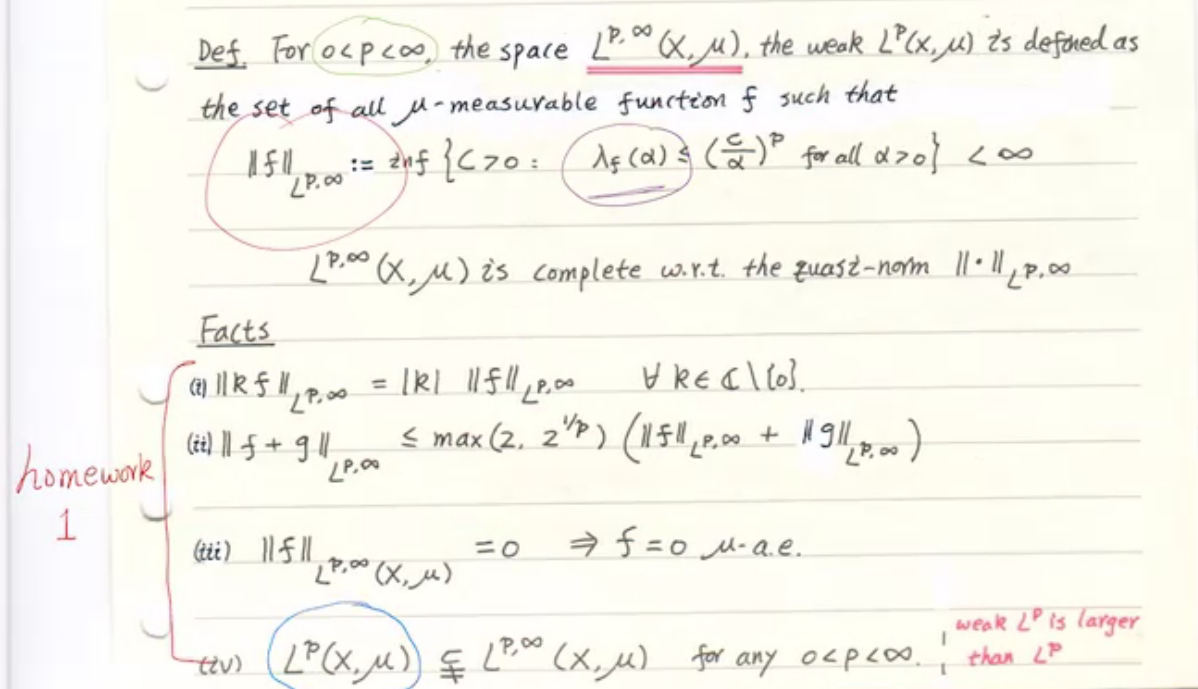 Def. For 0<p<∞, the space L^{p,∞}(X,μ), the weak L^p(X,μ) is defined as
the set of all μ-measurable function f such that
‖f‖_{L^{p,∞}} := inf {C>0 : λ_f(α) ≤ (C/α)^p for all α>0} < ∞
L^{p,∞}(X,μ) is complete w.r.t. the quasi-norm ‖·‖_{L^{p,∞}}
Facts
(i) ‖kf‖_{L^{p,∞}} = |k| ‖f‖_{L^{p,∞}} ∀ k∈ℂ\{0}.
(ii) ‖f+g‖_{L^{p,∞}} ≤ max(2, 2^{1/p}) (‖f‖_{L^{p,∞}} + ‖g‖_{L^{p,∞}})
homework
1
(iii) ‖f‖_{L^{p,∞}(X,μ)} = 0 ⇒ f=0 μ-a.e.
(iv) L^p(X,μ) ⊊ L^{p,∞}(X,μ) for any 0<p<∞.
weak L^p is larger
than L^p